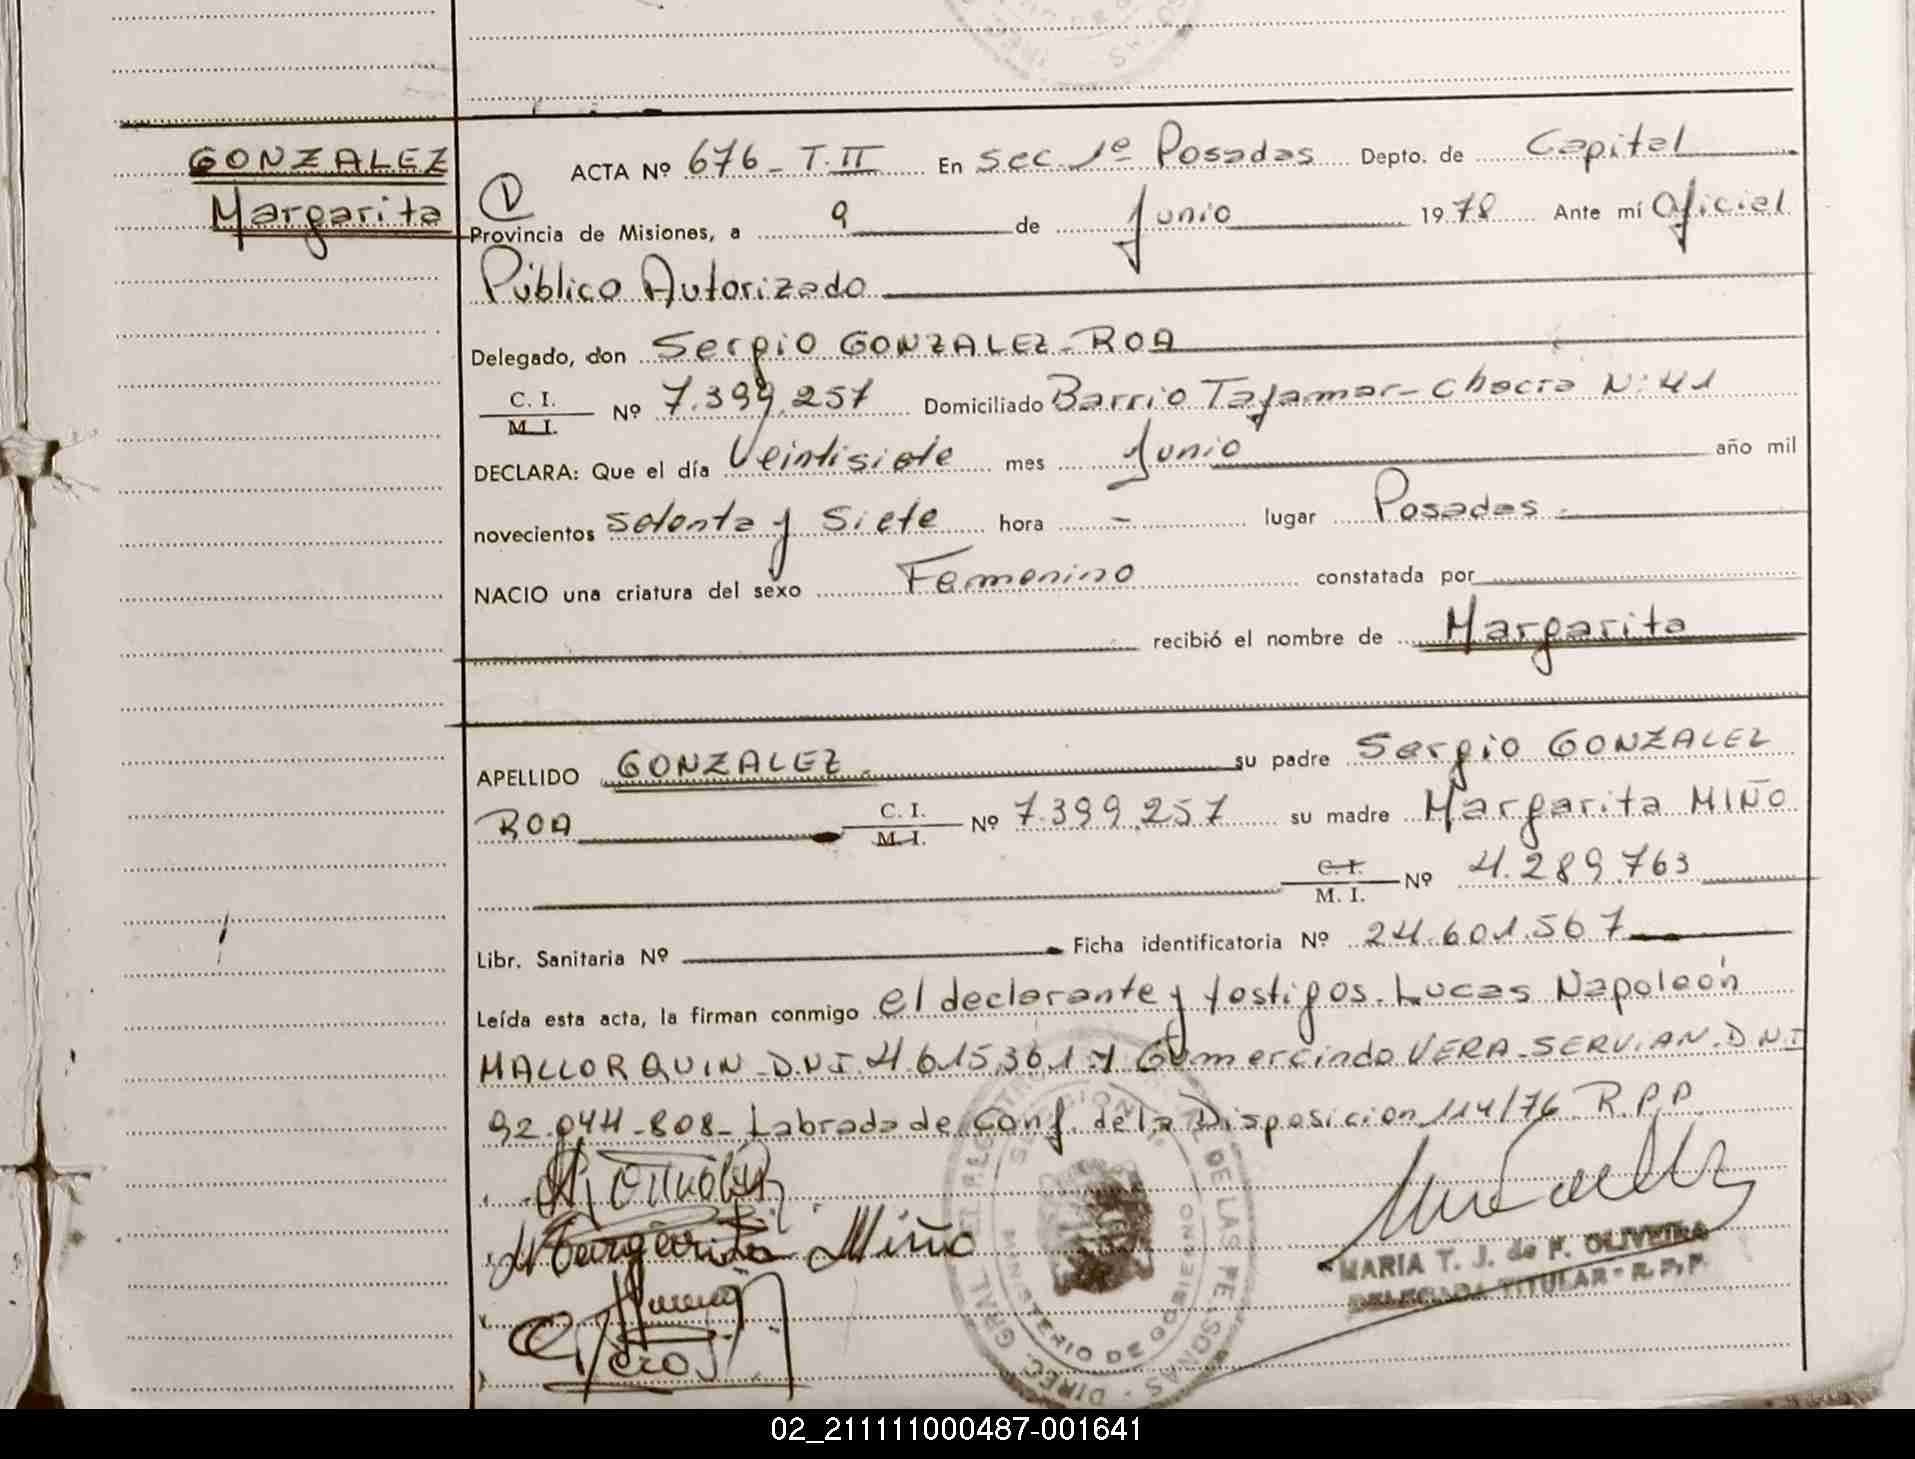 GONZALEZ
Margarita
ACTA Nº 676 - T. II En sec. 1º Posadas Depto. de Capital
Provincia de Misiones, a 9 de Junio 1978 Ante mí Oficial
Público Autorizado
Delegado, don Sergio GONZALEZ - ROA
C. I. / M. I. Nº 7.399.257 Domiciliado Barrio Tajamar - Chacra N: 41
DECLARA: Que el día Veintisiete mes Junio año mil
novecientos setenta y siete hora - lugar Posadas
NACIO una criatura del sexo Femenino constatada por
recibió el nombre de Margarita
APELLIDO GONZALEZ su padre Sergio GONZALEZ
ROA C. I. / M. I. Nº 7.399.257 su madre Margarita MIÑO
C. I. / M. I. Nº 4.289.763
Libr. Sanitaria Nº Ficha identificatoria Nº 24.601.567
Leída esta acta, la firman conmigo el declarante y testigos. Lucas Napoleón
MALLORQUIN - D.N.I. 4.615.361 y Gumercindo VERA - SERVIAN. D.N.I
92.044-808- Labrada de Conf. de la Disposicion 114/76 R.P.P.
Margarita Miño
MARIA T. J. de F. OLIVEIRA
DELEGADA TITULAR - R. P. P.
DIREC. GRAL. DE LAS PERSONAS
MINISTERIO DE GOBIERNO
02_211111000487-001641